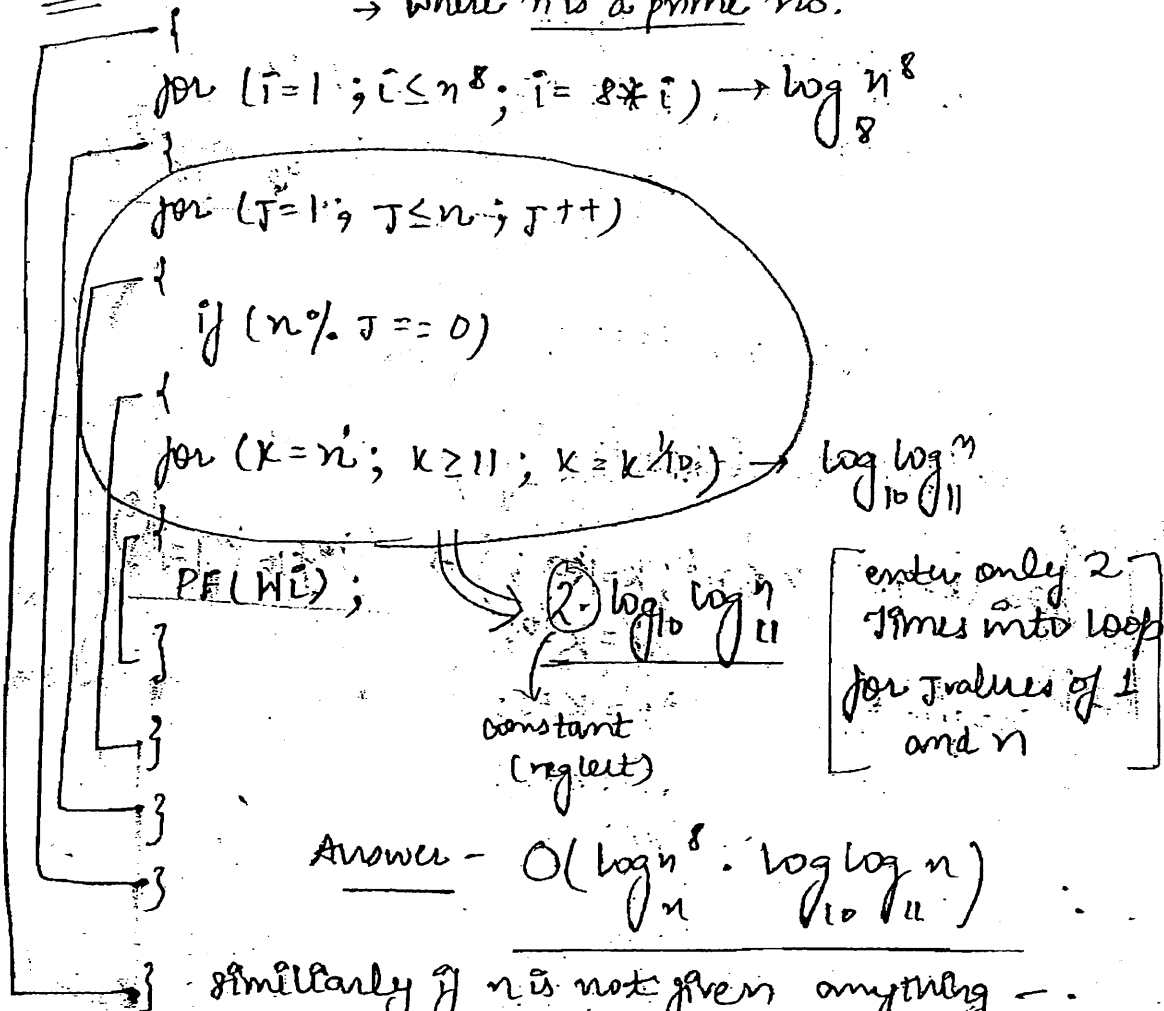 → where n is a prime no.
{
for (i=1 ; i≤n⁸; i= 8*i) → log₈ n⁸
{
for (J=1 ; J≤n ; J++)
{
if (n% J == 0)
{
for (K=n ; K≥11 ; K=K^1/10) → log₁₀ log₁₁ n
{
PF(Hi) ;
2. log₁₀ log₁₁ n
[enter only 2
Times into loop
for J values of 1
and n]
}
constant
(neglect)
}
}
Answer - O(logₙ n⁸ . log₁₀ log₁₁ n)
}
} similarly if n is not given anything -.